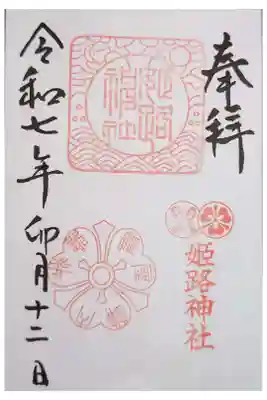 奉拝
姫路神社
姫路神社
令和七年卯月十二日